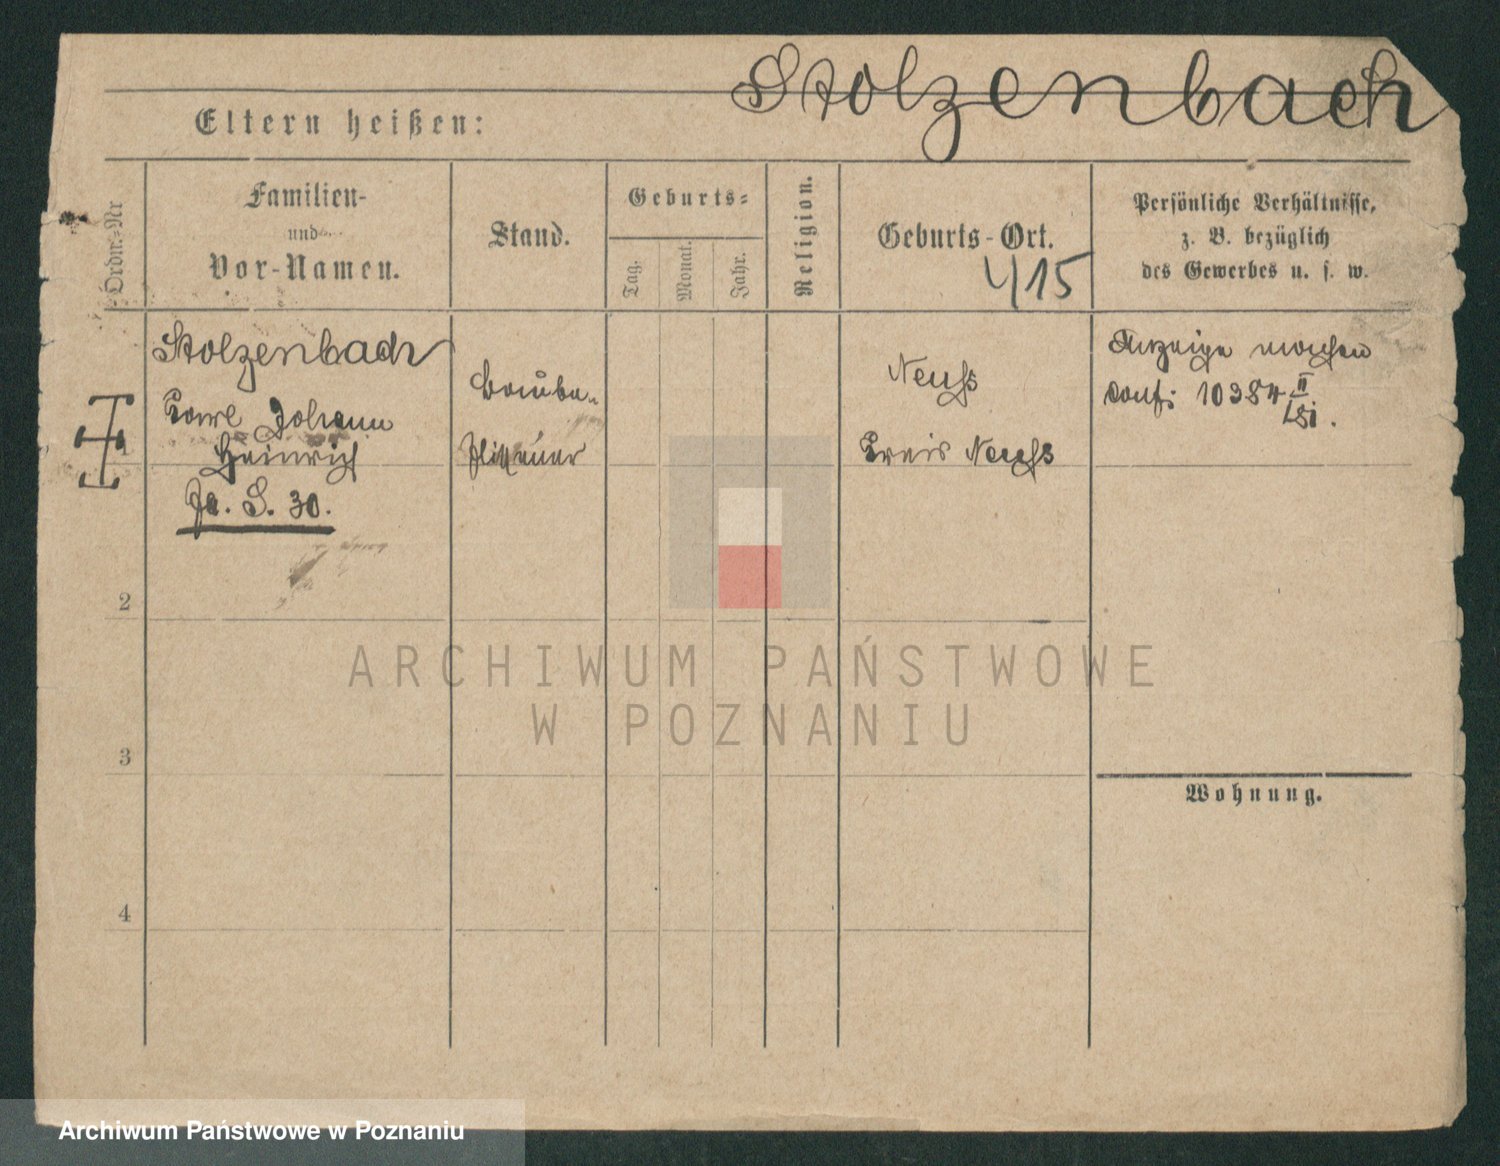 Stolzenbach
Eltern heißen:
Ordn.-Nr
Familien-
und
Vor-Namen.
Stand.
Geburts-
Tag.
Monat.
Jahr.
Religion.
Geburts-Ort.
415
Persönliche Verhältnisse,
z. B. bezüglich
des Gewerbes u. s. w.
Stolzenbach
Carl Johann
Heinrich
Pa. S. 30.
1
Neuss
Kreis Neuss
Anzeige machen
conf: 10384 II
2
3
4
Wohnung.
ARCHIWUM PAŃSTWOWE
W POZNANIU
Archiwum Państwowe w Poznaniu